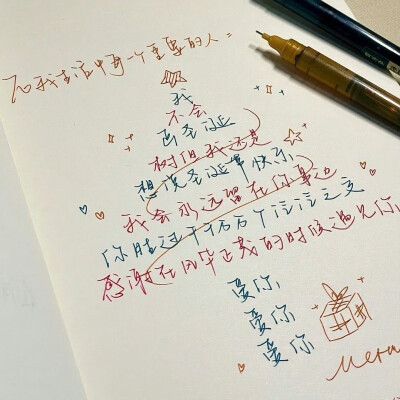 致我生活中每一个重要的人：
我
不会
画圣诞
树但我还是
想说圣诞节快乐
我会永远留在你身边
你胜过千千万万个泛泛之交
感谢在风华正茂的时候遇见你
爱你
爱你
爱你
Merry